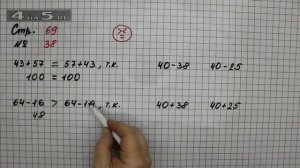 4 на 5.ru
Стр. 69
№ 38
43+57 = 57+43, т.к. 40-38 40-25
100 = 100
64-16 > 64-18, т.к. 40+38 40+25
48